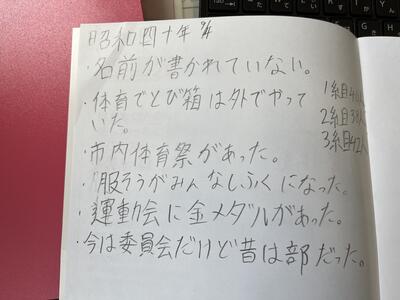 昭和四十年 9/4
・名前が書かれていない。
・体育でとび箱は外でやって
いた。
・市内体育祭があった。
・服そうがみんなしふくになった。
・運動会に金メダルがあった。
・今は委員会だけど昔は部だった。
1組目41人
2組目38人
3組目42人